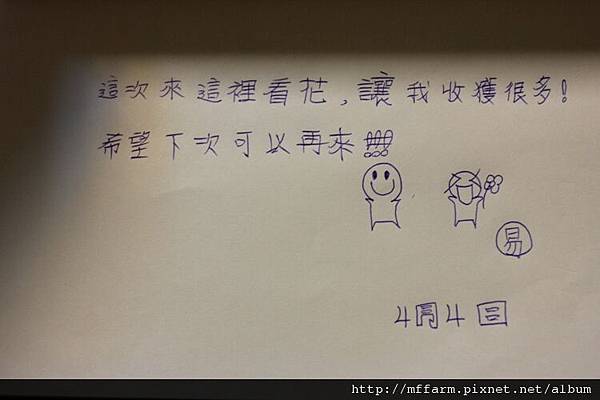 這次來這裡看花,讓我收獲很多!
希望下次可以再來!!!
易
4月4日
http://mffarm.pixnet.net/album